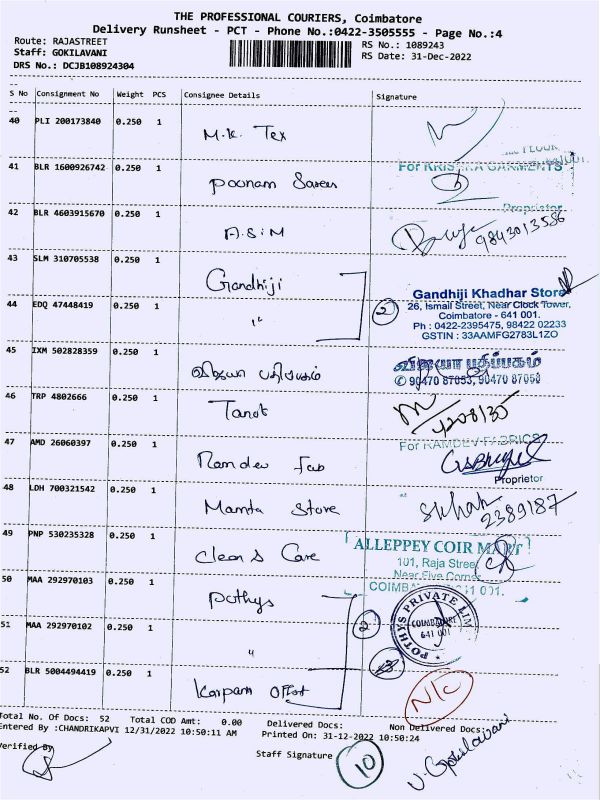 THE PROFESSIONAL COURIERS, Coimbatore
Delivery Runsheet - PCT - Phone No.:0422-3505555 - Page No.:4
Route: RAJASTREET
RS No.: 1089243
Staff: GOKILAVANI
RS Date: 31-Dec-2022
DRS No.: DCJB108924304
S No Consignment No Weight PCS Consignee Details Signature
40 PLI 200173840 0.250 1 M.K. Tex
41 BLR 1600926742 0.250 1 Poonam Sarees
For KRISHNA GARMENTS
Proprietor
42 BLR 4603915670 0.250 1 A.S.M 9843013586
43 SLM 310705538 0.250 1 Gandhiji
44 EDQ 47448419 0.250 1 " 2
Gandhiji Khadhar Store
26, Ismail Street, Near Clock Tower,
Coimbatore - 641 001.
Ph : 0422-2395475, 98422 02233
GSTIN : 33AAMFG2783L1ZO
45 IXM 502828359 0.250 1 விஜயா பதிப்பகம்
விஜயா பதிப்பகம்
90470 87053, 90470 87058
46 TRP 4802666 0.250 1 Tanot 4208135
47 AMD 26060397 0.250 1 Ramdev Fab
For RAMDEV FABRICS
Proprietor
48 LDH 700321542 0.250 1 Mamta Store 2389187
49 PNP 530235328 0.250 1 Clean & Care
ALLEPPEY COIR MART
101, Raja Street
Near Five Corner
COIMBATORE - 641 001.
50 MAA 292970103 0.250 1 Pothys
POTHYS PRIVATE LIM
COIMBATORE
641 001
51 MAA 292970102 0.250 1 " 2
52 BLR 5004494419 0.250 1 Karpam Offset N/C
Total No. Of Docs: 52 Total COD Amt: 0.00 Delivered Docs: Non Delivered Docs:
Entered By :CHANDRIKAPVI 12/31/2022 10:50:11 AM Printed On: 31-12-2022 10:50:24
Verified By Staff Signature 10 V. Gokilavani